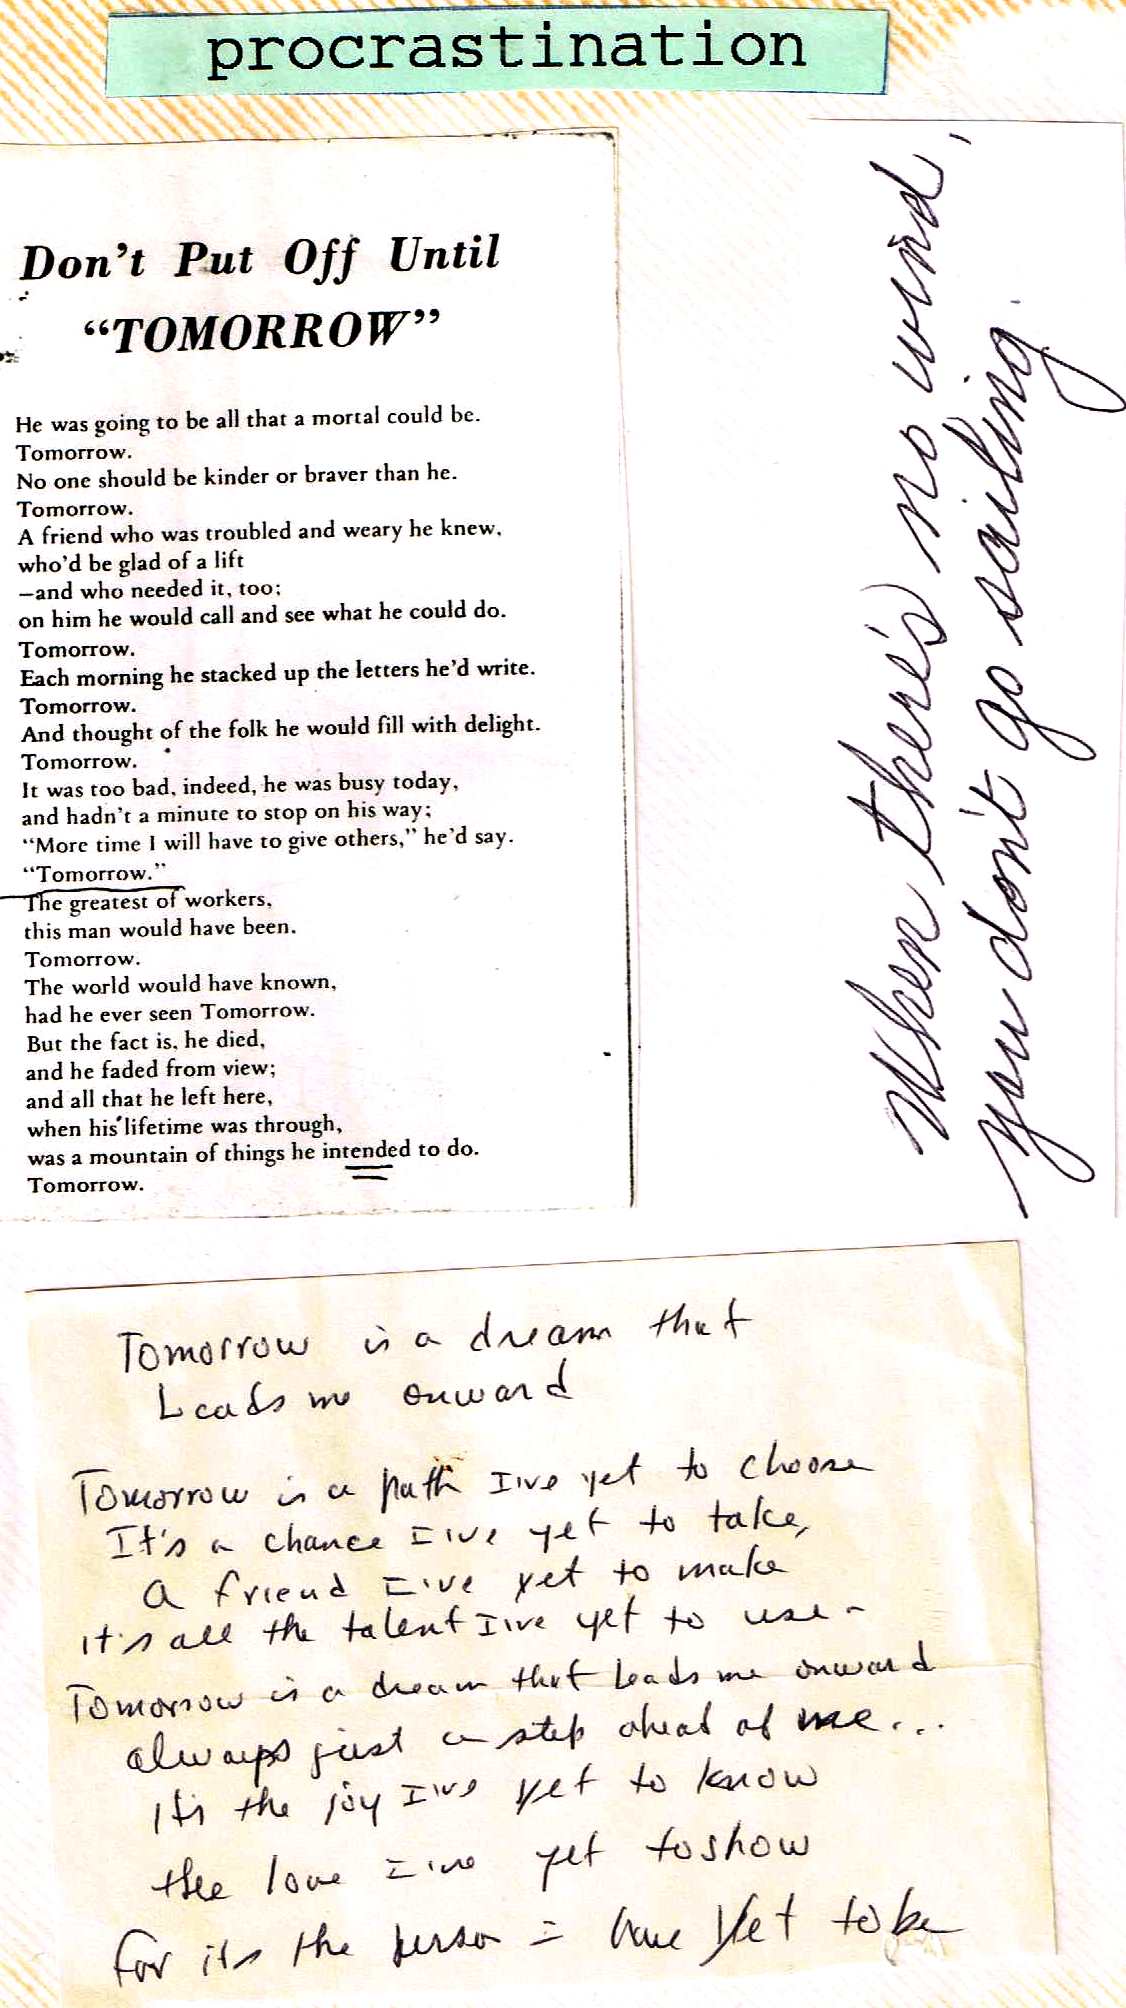 procrastination
Don't Put Off Until
“TOMORROW”
He was going to be all that a mortal could be.
Tomorrow.
No one should be kinder or braver than he.
Tomorrow.
A friend who was troubled and weary he knew,
who'd be glad of a lift
—and who needed it, too;
on him he would call and see what he could do.
Tomorrow.
Each morning he stacked up the letters he'd write.
Tomorrow.
And thought of the folk he would fill with delight.
Tomorrow.
It was too bad, indeed, he was busy today,
and hadn't a minute to stop on his way;
“More time I will have to give others,” he'd say.
“Tomorrow.”
The greatest of workers,
this man would have been.
Tomorrow.
The world would have known,
had he ever seen Tomorrow.
But the fact is, he died,
and he faded from view;
and all that he left here,
when his lifetime was through,
was a mountain of things he intended to do.
Tomorrow.
When there's no wind,
you don't go sailing.
Tomorrow is a dream that
Leads me onward
Tomorrow is a path I've yet to choose
It's a chance I've yet to take,
a friend I've yet to make
it's all the talent I've yet to use-
Tomorrow is a dream that leads me onward
always just a step ahead of me...
It's the joy I've yet to know
the love I've yet to show
for its the person I have yet to be